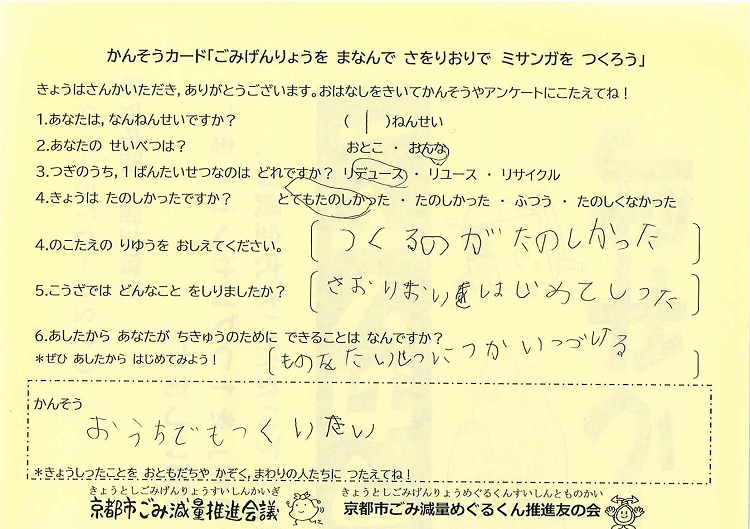 かんそうカード「ごみげんりょうを まなんで さをりおりで ミサンガを つくろう」
きょうはさんかいただき,ありがとうございます。おはなしをきいてかんそうやアンケートにこたえてね!
1.あなたは,なんねんせいですか? ( 1 )ねんせい
2.あなたの せいべつは? おとこ ・ おんな
3.つぎのうち,1ばんたいせつなのは どれですか? リデュース ・ リユース ・ リサイクル
4.きょうは たのしかったですか? とてもたのしかった ・ たのしかった ・ ふつう ・ たのしくなかった
4.のこたえの りゆうを おしえてください。 つくるのがたのしかった
5.こうざでは どんなこと をしりましたか? さおりおりをはじめてしった
6.あしたから あなたが ちきゅうのために できることは なんですか?
*ぜひ あしたから はじめてみよう! ものをたいせつにつかいつづける
かんそう
おうちでもつくりたい
*きょうしったことを おともだちや かぞく,まわりの人たちに つたえてね!
きょうとしごみげんりょうすいしんかいぎ きょうとしごみげんりょうめぐるくんすいしんとものかい
京都市ごみ減量推進会議 京都市ごみ減量めぐるくん推進友の会